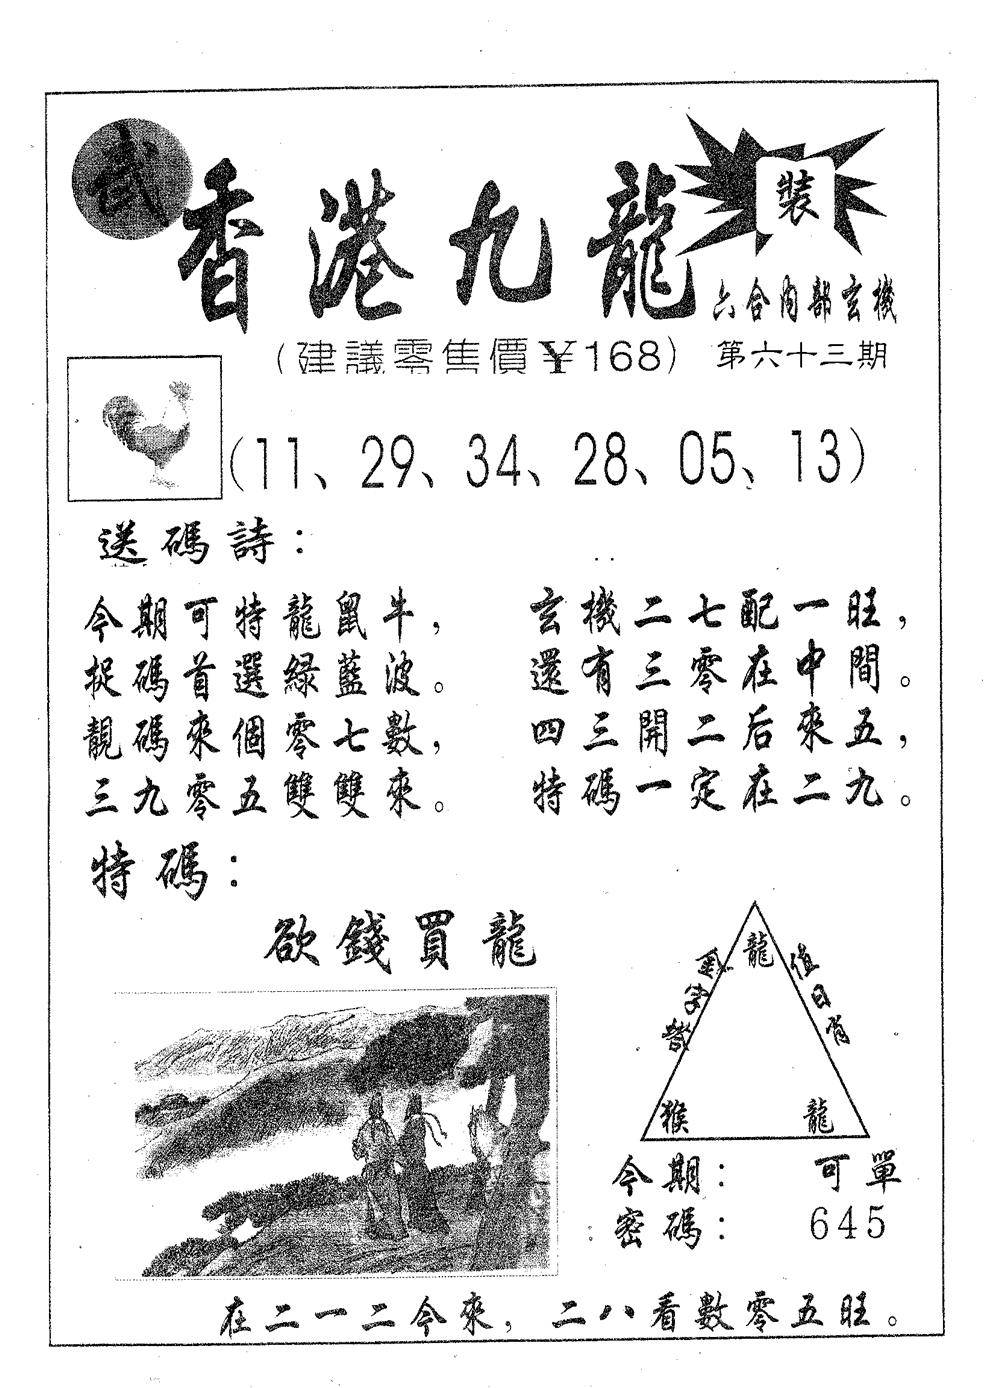 武
香港九龍
裝
六合内部玄機
(建議零售價¥168) 第六十三期
(11、29、34、28、05、13)
送碼詩：
今期可特龍鼠牛，
捉碼首選緑藍波。
靚碼來個零七數，
三九零五雙雙來。
玄機二七配一旺，
還有三零在中間。
四三開二后來五，
特碼一定在二九。
特碼：
欲錢買龍
龍
值日肖
猴
龍
今期： 可單
密碼： 645
在二一二今來，二八看數零五旺。